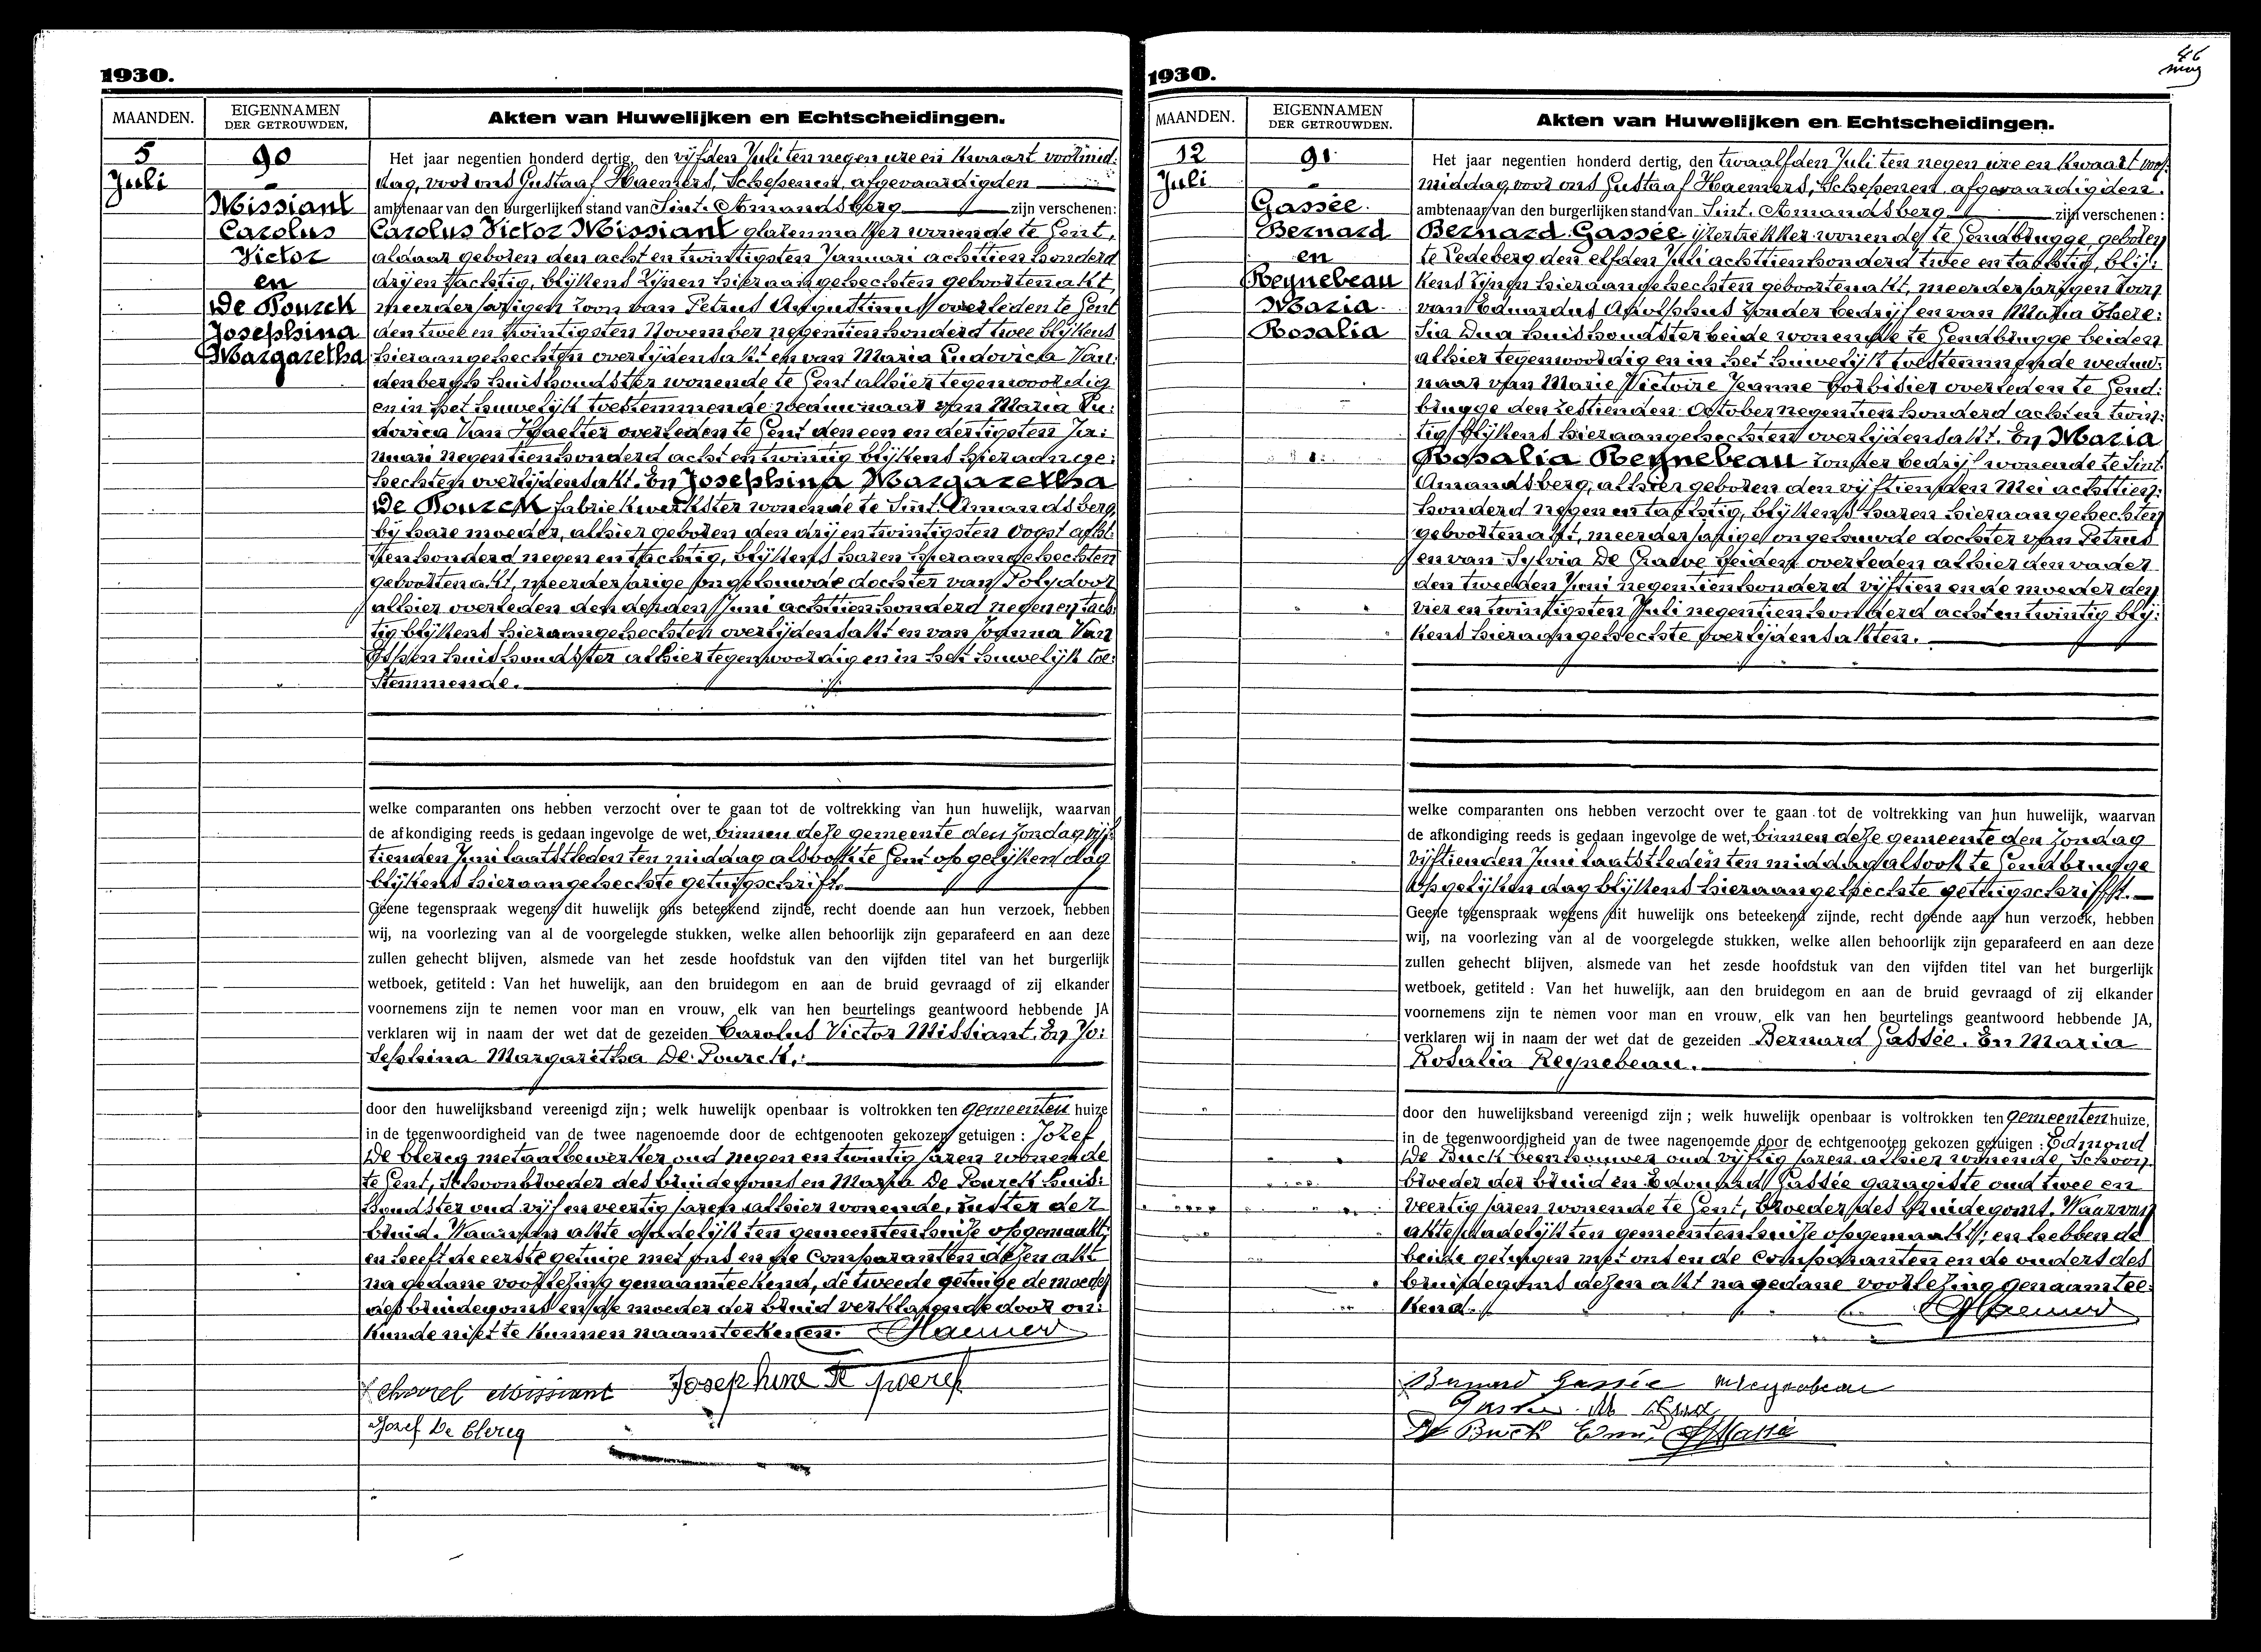 1930.
MAANDEN.
EIGENNAMEN
DER GETROUWDEN.
Akten van Huwelijken en Echtscheidingen.
5
Juli
90
Missiant
Carolus
Victor
en
De Pourck
Josephina
Margaretha
Het jaar negentien honderd dertig, den vijfden Juli ten negen ure en kwaart voormid:
dag, voor ons Gustaaf Haemers, Schepenen, afgevaardigden
ambtenaar van den burgerlijken stand van Sint. Amandsberg zijn verschenen:
Carolus Victor Missiant wonende te Gent,
aldaar geboren den acht en twintigsten Januari achttien honderd
drij en tachtig, blijkens zijnen hieraangehechten geboortenakt,
meerderjarigen zoon van Petrus Augustinus overleden te Gent
den twee en twintigsten November negentien honderd twee blijkens
hieraangehechten overlijdensakt en van Maria Ludovica Van:
denbergh huishoudster wonende te Gent alhier tegenwoordig
en in het huwelijk toestemmende weduwnaar van Maria Lu:
dovica Van overleden te Gent den een en dertigsten Ja:
nuari negentien honderd acht en twintig blijkens hieraange:
hechten overlijdensakt. En Josephina Margaretha
De Pourck fabriekwerkster wonende te Sint. Amandsberg,
bij hare moeder, alhier geboren den drij en twintigsten Oogst acht:
tien honderd negen en tachtig, blijkens haren hieraangehechten
geboortenakt, meerderjarige ongehuwde dochter van Polydoor
alhier overleden den derden Juni achttien honderd negen en tach:
tig blijkens hieraangehechten overlijdensakt en van Joanna Van
huishoudster alhier tegenwoordig en in het huwelijk toe:
stemmende.
welke comparanten ons hebben verzocht over te gaan tot de voltrekking van hun huwelijk, waarvan
de afkondiging reeds is gedaan ingevolge de wet, binnen deze gemeente den Zondag vijf:
tienden Juni laatstleden ten middag alsook te Gent op gelijken dag
blijkens hieraangehechte getuigschrift.
Geene tegenspraak wegens dit huwelijk ons beteekend zijnde, recht doende aan hun verzoek, hebben
wij, na voorlezing van al de voorgelegde stukken, welke allen behoorlijk zijn geparafeerd en aan deze
zullen gehecht blijven, alsmede van het zesde hoofdstuk van den vijfden titel van het burgerlijk
wetboek, getiteld : Van het huwelijk, aan den bruidegom en aan de bruid gevraagd of zij elkander
voornemens zijn te nemen voor man en vrouw, elk van hen beurtelings geantwoord hebbende JA
verklaren wij in naam der wet dat de gezeiden Carolus Victor Missiant. En Jo:
sephina Margaritha De Pourck,
door den huwelijksband vereenigd zijn ; welk huwelijk openbaar is voltrokken ten gemeenten huize
in de tegenwoordigheid van de twee nagenoemde door de echtgenooten gekozen getuigen : Jozef
De Clercq metaalbewerker oud negen en twintig jaren wonende
te Gent, Schoonbroeder des bruidegoms en Maria De Pourck huis:
houdster oud vijf en veertig jaren alhier wonende, zuster der
bruid. Waarvan akte dadelijk ten gemeentenhuize opgemaakt,
en heeft de eerste getuige met ons en de Comparanten dezen akt
na gedane voorlezing genaamteekend, de tweede getuige de moeder
des bruidegoms en de moeder der bruid verklarende door on:
kunde niet te kunnen naamteekenen. GHaemers
Charel Missiant Josephine De Poerck
Jozef De Clercq
1930.
46
MAANDEN.
EIGENNAMEN
DER GETROUWDEN.
Akten van Huwelijken en Echtscheidingen.
12
Juli
91
Gassée
Bernard
en
Reynebeau
Maria
Rosalia
Het jaar negentien honderd dertig, den twaalfden Juli ten negen ure en kwaart voor:
middag, voor ons Gustaaf Haemers, Schepenen, afgevaardigden
ambtenaar van den burgerlijken stand van Sint. Amandsberg zijn verschenen :
Bernard Gassée ijzertrekker wonende te Gendbrugge, geboren
te Ledeberg den elfden Juli achttien honderd twee en tachtig, blij:
kens zijnen hieraangehechten geboortenakt, meerderjarigen zoon
van Eduardus Adolphus zonder bedrijf en van Maria There:
sia Dua huishoudster beide wonende te Gendbrugge beiden
alhier tegenwoordig en in het huwelijk toestemmende weduw:
naar van Marie Victoire Jeanne overleden te Gend:
brugge den zestienden October negentien honderd acht en twin:
tig blijkens hieraangehechten overlijdensakt. En Maria
Rosalia Reynebeau zonder bedrijf wonende te Sint.
Amandsberg, alhier geboren den vijftienden Mei achttien:
honderd negen en tachtig, blijkens haren hieraangehechten
geboortenakt, meerderjarige ongehuwde dochter van Petrus
en van Sylvia De Graeve beiden overleden alhier den vader
den tweeden Juni negentien honderd vijftien en de moeder den
vier en twintigsten Juli negentien honderd acht en twintig blij:
kens hieraangehechte overlijdensakten.
welke comparanten ons hebben verzocht over te gaan tot de voltrekking van hun huwelijk, waarvan
de afkondiging reeds is gedaan ingevolge de wet, binnen deze gemeente den Zondag
vijftienden Juni laatstleden ten middag alsook te Gendbrugge
op gelijken dag blijkens hieraangehechte getuigschrift.
Geene tegenspraak wegens dit huwelijk ons beteekend zijnde, recht doende aan hun verzoek, hebben
wij, na voorlezing van al de voorgelegde stukken, welke allen behoorlijk zijn geparafeerd en aan deze
zullen gehecht blijven, alsmede van het zesde hoofdstuk van den vijfden titel van het burgerlijk
wetboek, getiteld : Van het huwelijk, aan den bruidegom en aan de bruid gevraagd of zij elkander
voornemens zijn te nemen voor man en vrouw, elk van hen beurtelings geantwoord hebbende JA,
verklaren wij in naam der wet dat de gezeiden Bernard Gassée. En Maria
Rosalia Reynebeau.
door den huwelijksband vereenigd zijn ; welk huwelijk openbaar is voltrokken ten gemeenten huize,
in de tegenwoordigheid van de twee nagenoemde door de echtgenooten gekozen getuigen : Edmond
De Buck beenhouwer oud vijftig jaren alhier wonende, Schoon:
broeder der bruid en Edouard Gassée garagiste oud twee en
veertig jaren wonende te Gent, broeder des bruidegoms. Waarvan
akte dadelijk ten gemeentenhuize opgemaakt, en hebben de
beide getuigen met ons en de Comparanten en de ouders des
bruidegoms dezen akt na gedane voorlezing genaamtee:
kend. GHaemers
Bernard Gassée MReynebeau
De Buck Edm. Gassée